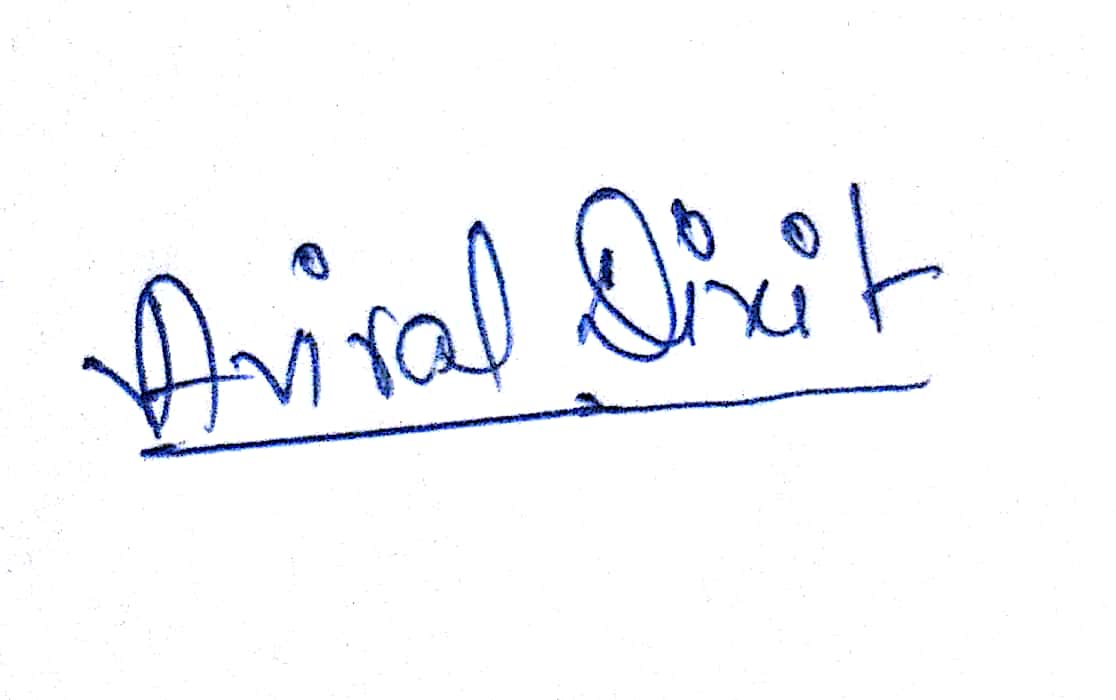 Aviral Dixit